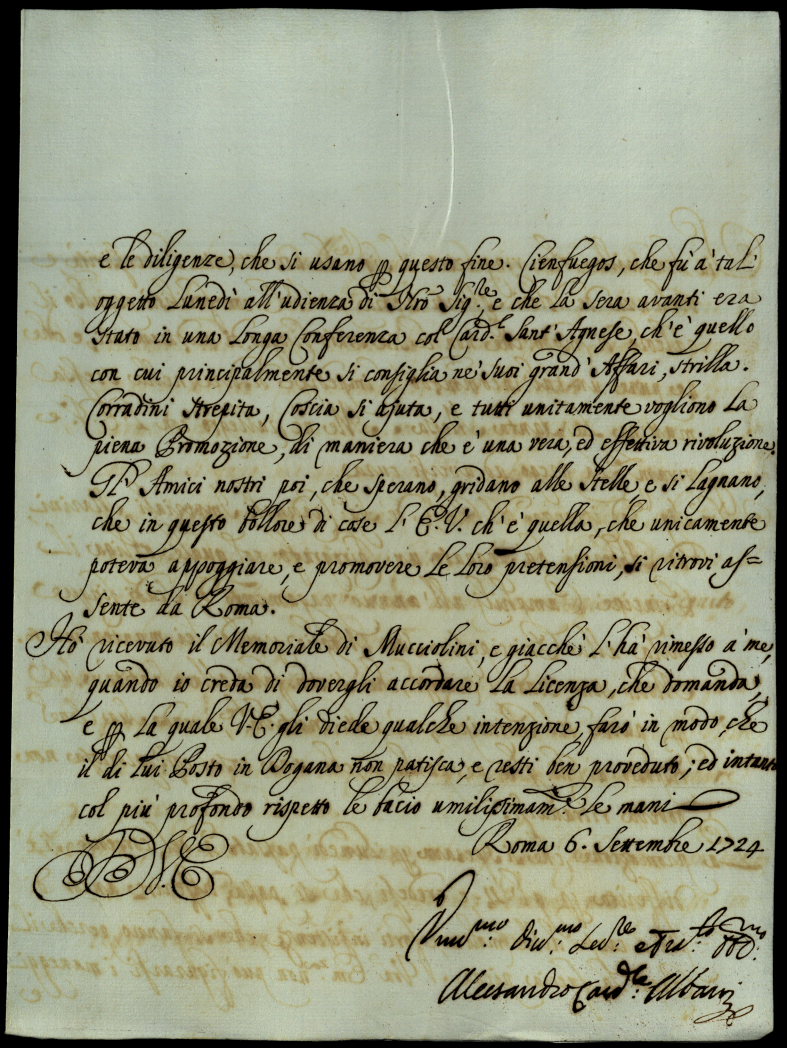 e le diligenze, che si usano p questo fine. Cienfuegos, che fù à tal
oggetto Lunedì all'udienza di Nro Sig.re e che la sera avanti era
stato in una longa Conferenza col Card.l Sant'Agnese, ch'è quello
con cui principalmente si consiglia ne' suoi grand'Affari, strilla.
Corradini strepita, Coscia si ajuta, e tutti unitamente vogliono la
piena Promozione, di maniera che è una vera, ed effettiva rivoluzione.
Gl' Amici nostri poi, che sperano, gridano alle stelle, e si lagnano,
che in questo bollore di cose l'E.V. ch'è quella, che unicamente
poteva appoggiare, e promovere le loro pretensioni, si ritrovi as=
sente da Roma.
Hò ricevuto il Memoriale di Mucciolini, e giacchè l'hà rimesso à me,
quando io creda di dovergli accordare la licenza, che domanda,
e p la quale V.E. gli diede qualche intenzione, farò in modo, che
il di lui Posto in Dogana non patisca, e resti ben proveduto; ed intanto
col più profondo rispetto le bacio umilissimam.te le mani
Roma 6. Settembre 1724
V.E.
Um.mo Div.mo Ser.re e
Alessandro Card.le Albani